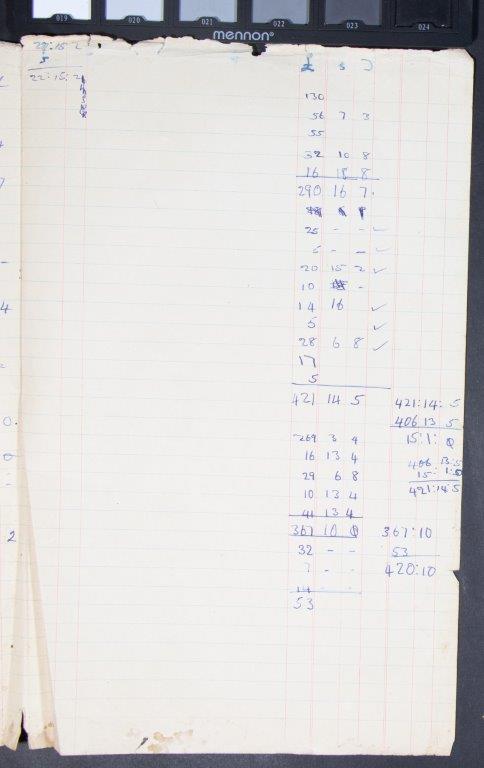 019 020 021 022 023 024
mennon
22:15:2
5
22:15:2
£ s D
130
56 7 3
55
32 10 8
16 18 8
290 16 7.
25 - - ✓
5 - - ✓
20 15 2 ✓
10 -
14 16 ✓
5 ✓
28 6 8 ✓
17
5
421 14 5
421:14:5
406 13 5
15:1:0
269 3 4
16 13 4
29 6 8
10 13 4
41 13 4
367 10 0
406 13:5
15:1:0
421:14:5
367:10
53
420:10
32 - -
7 - -
14
53
4
7
-
4
0.
0
2